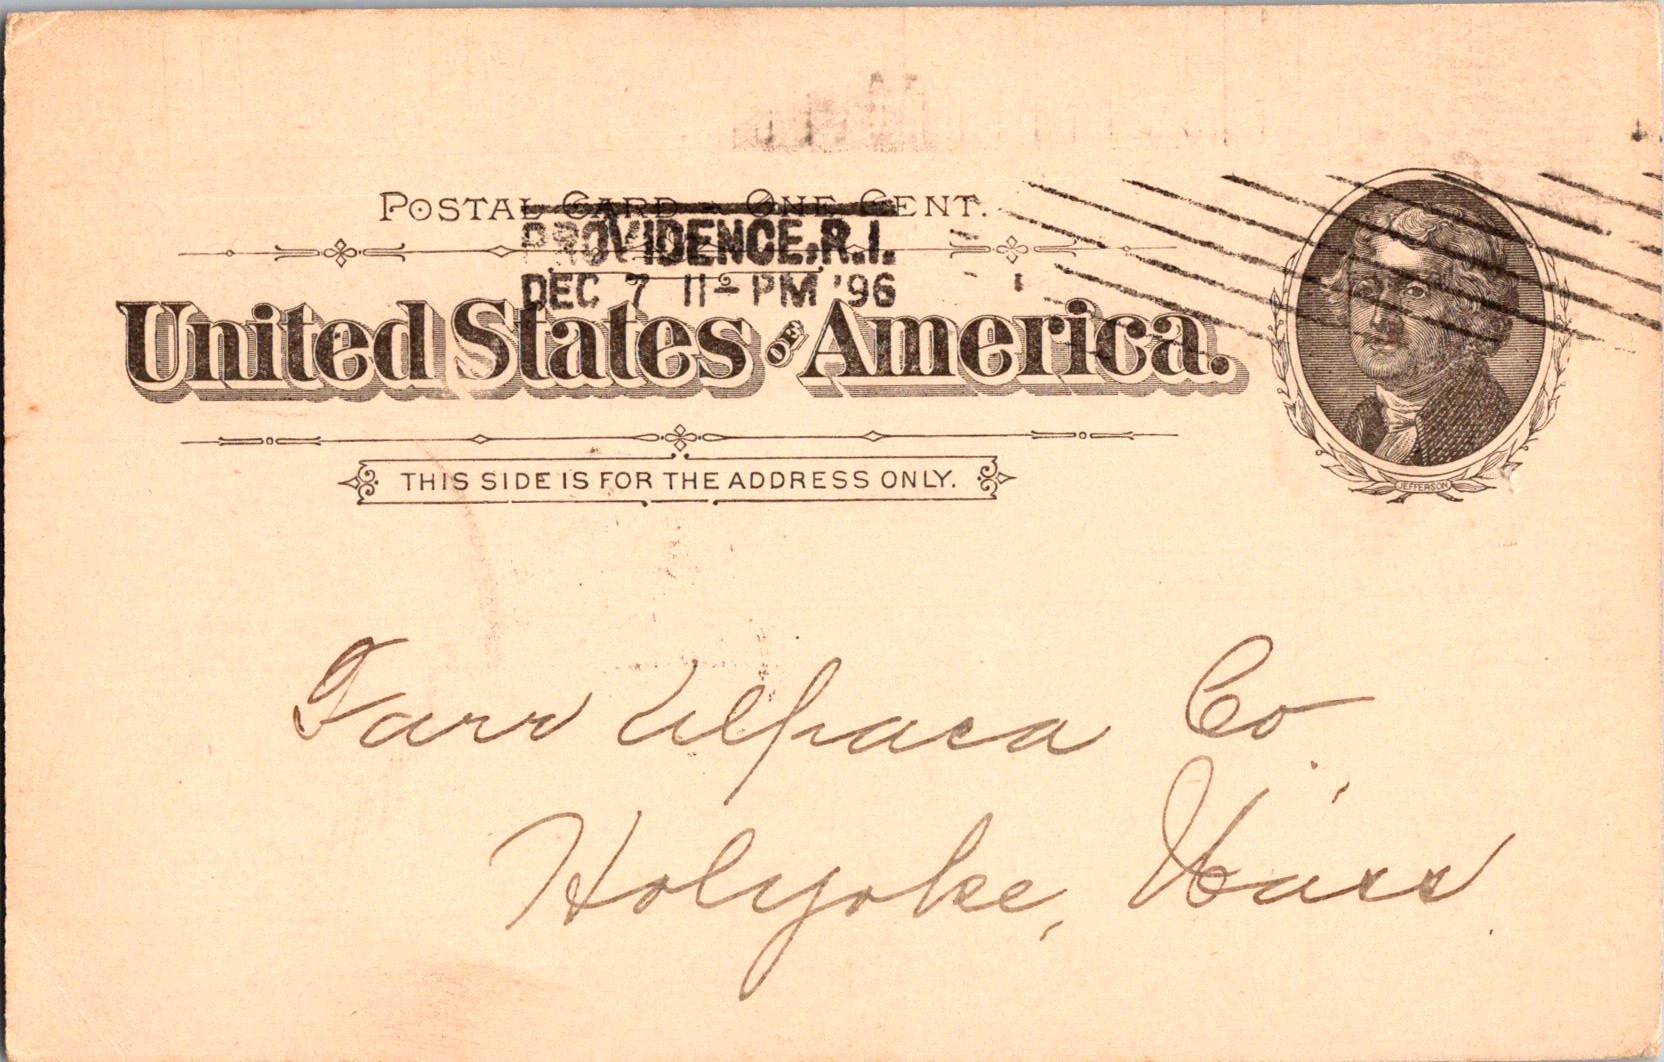 POSTAL CARD - ONE CENT.
PROVIDENCE, R.I.
DEC 7 11- PM '96
United States OF America.
THIS SIDE IS FOR THE ADDRESS ONLY.
JEFFERSON
Farr Alpaca Co
Holyoke, Mass.